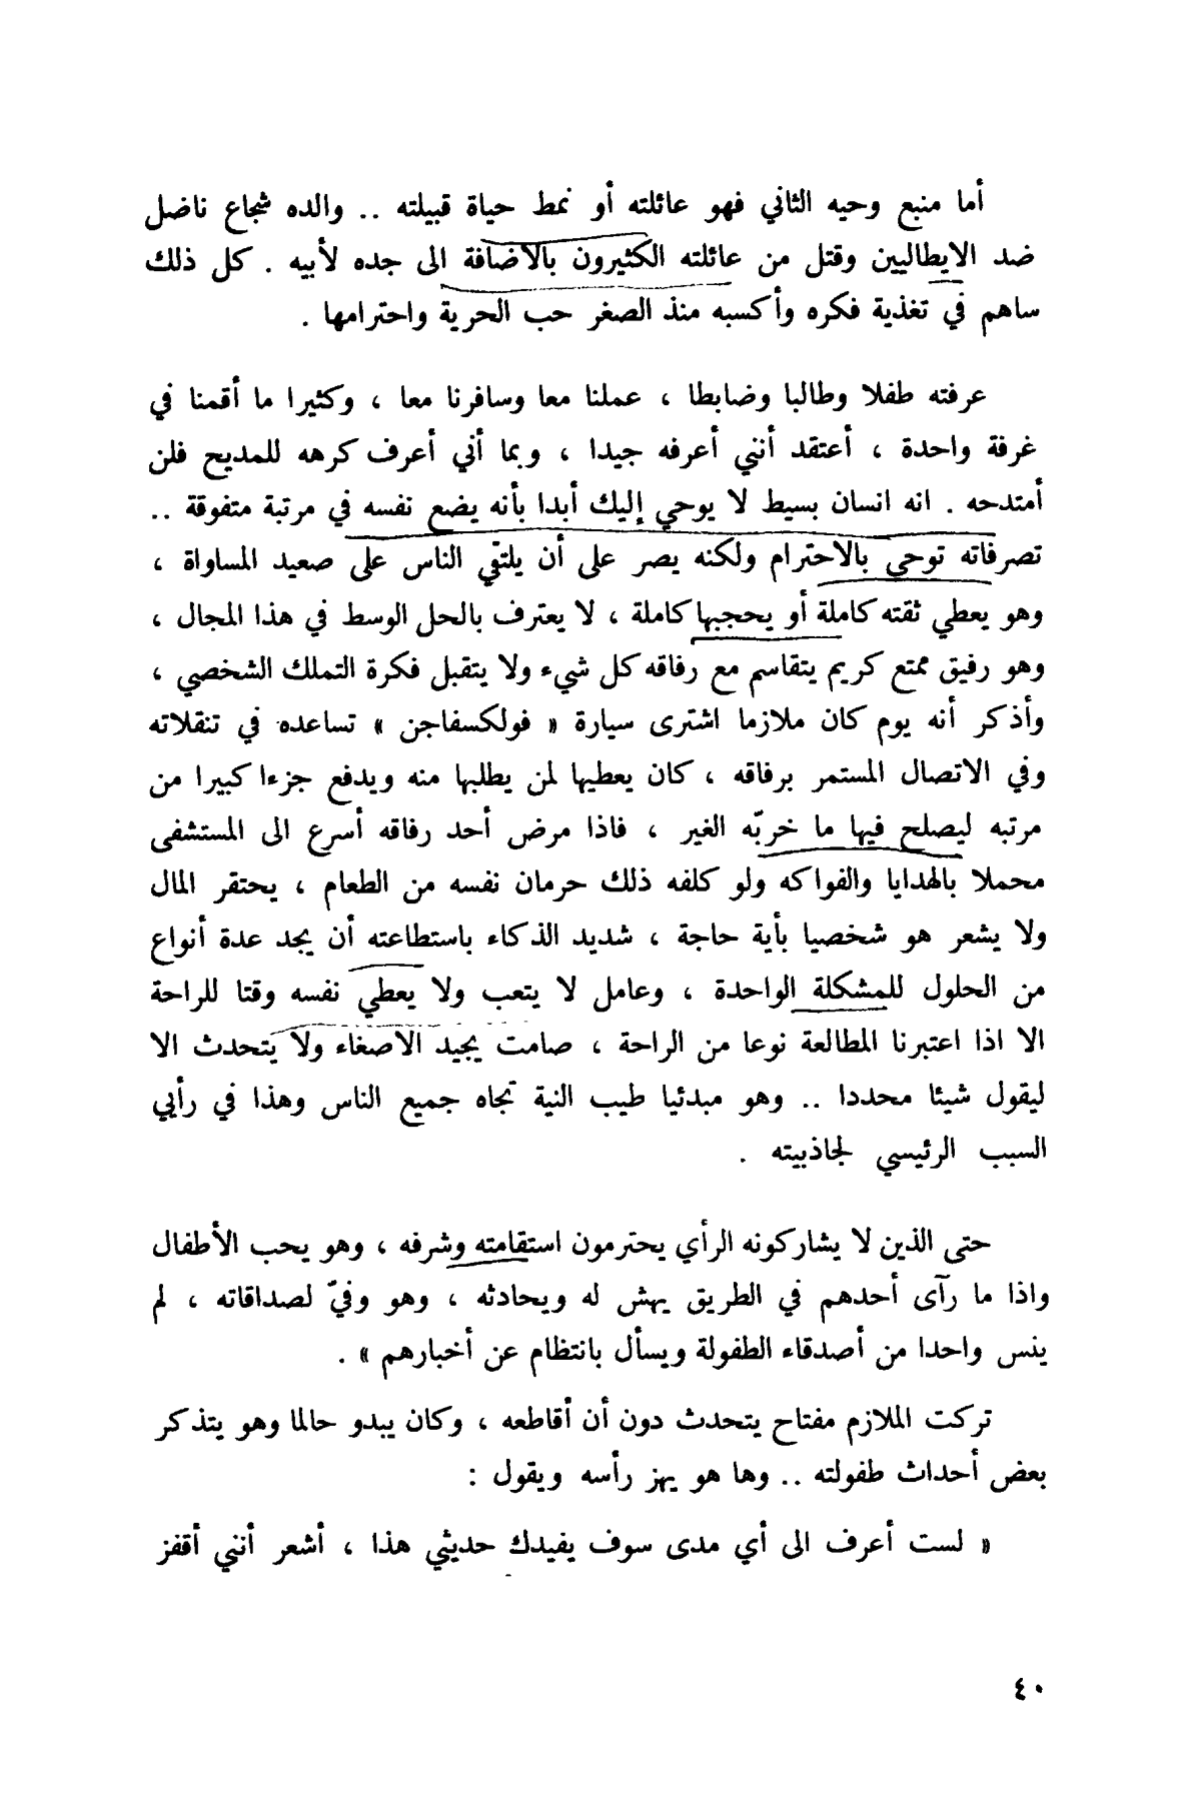 أما منبع وحيه الثاني فهو عائلته أو نمط حياة قبيلته .. والده شجاع ناضل
ضد الايطاليين وقتل من عائلته الكثيرون بالاضافة الى جده لأبيه . كل ذلك
ساهم في تغذية فكره وأكسبه منذ الصغر حب الحرية واحترامها .
عرفته طفلا وطالبا وضابطا ، عملنا معا وسافرنا معا ، وكثيرا ما أقمنا في
غرفة واحدة ، أعتقد أنني أعرفه جيدا ، وبما أني أعرف كرهه للمديح فلن
أمتدحه . انه انسان بسيط لا يوحي إليك أبدا بأنه يضع نفسه في مرتبة متفوقة ..
تصرفاته توحي بالاحترام ولكنه يصر على أن يلتقي الناس على صعيد المساواة ،
وهو يعطي ثقته كاملة أو يحجبها كاملة ، لا يعترف بالحل الوسط في هذا المجال ،
وهو رفيق ممتع كريم يتقاسم مع رفاقه كل شيء ولا يتقبل فكرة التملك الشخصي ،
وأذكر أنه يوم كان ملازما اشترى سيارة « فولكسفاجن » تساعده في تنقلاته
وفي الاتصال المستمر برفاقه ، كان يعطيها لمن يطلبها منه ويدفع جزءا كبيرا من
مرتبه ليصلح فيها ما خربّه الغير ، فاذا مرض أحد رفاقه أسرع الى المستشفى
محملا بالهدايا والفواكه ولو كلفه ذلك حرمان نفسه من الطعام ، يحتقر المال
ولا يشعر هو شخصيا بأية حاجة ، شديد الذكاء باستطاعته أن يجد عدة أنواع
من الحلول للمشكلة الواحدة ، وعامل لا يتعب ولا يعطي نفسه وقتا للراحة
الا اذا اعتبرنا المطالعة نوعا من الراحة ، صامت يجيد الاصغاء ولا يتحدث الا
ليقول شيئا محددا .. وهو مبدئيا طيب النية تجاه جميع الناس وهذا في رأيي
السبب الرئيسي لجاذبيته .
حتى الذين لا يشاركونه الرأي يحترمون استقامته وشرفه ، وهو يحب الأطفال
واذا ما رآى أحدهم في الطريق يهش له ويحادثه ، وهو وفيّ لصداقاته ، لم
ينس واحدا من أصدقاء الطفولة ويسأل بانتظام عن أخبارهم » .
تركت الملازم مفتاح يتحدث دون أن أقاطعه ، وكان يبدو حالما وهو يتذكر
بعض أحداث طفولته .. وها هو يهز رأسه ويقول :
« لست أعرف الى أي مدى سوف يفيدك حديثي هذا ، أشعر أنني أقفز
٤٠